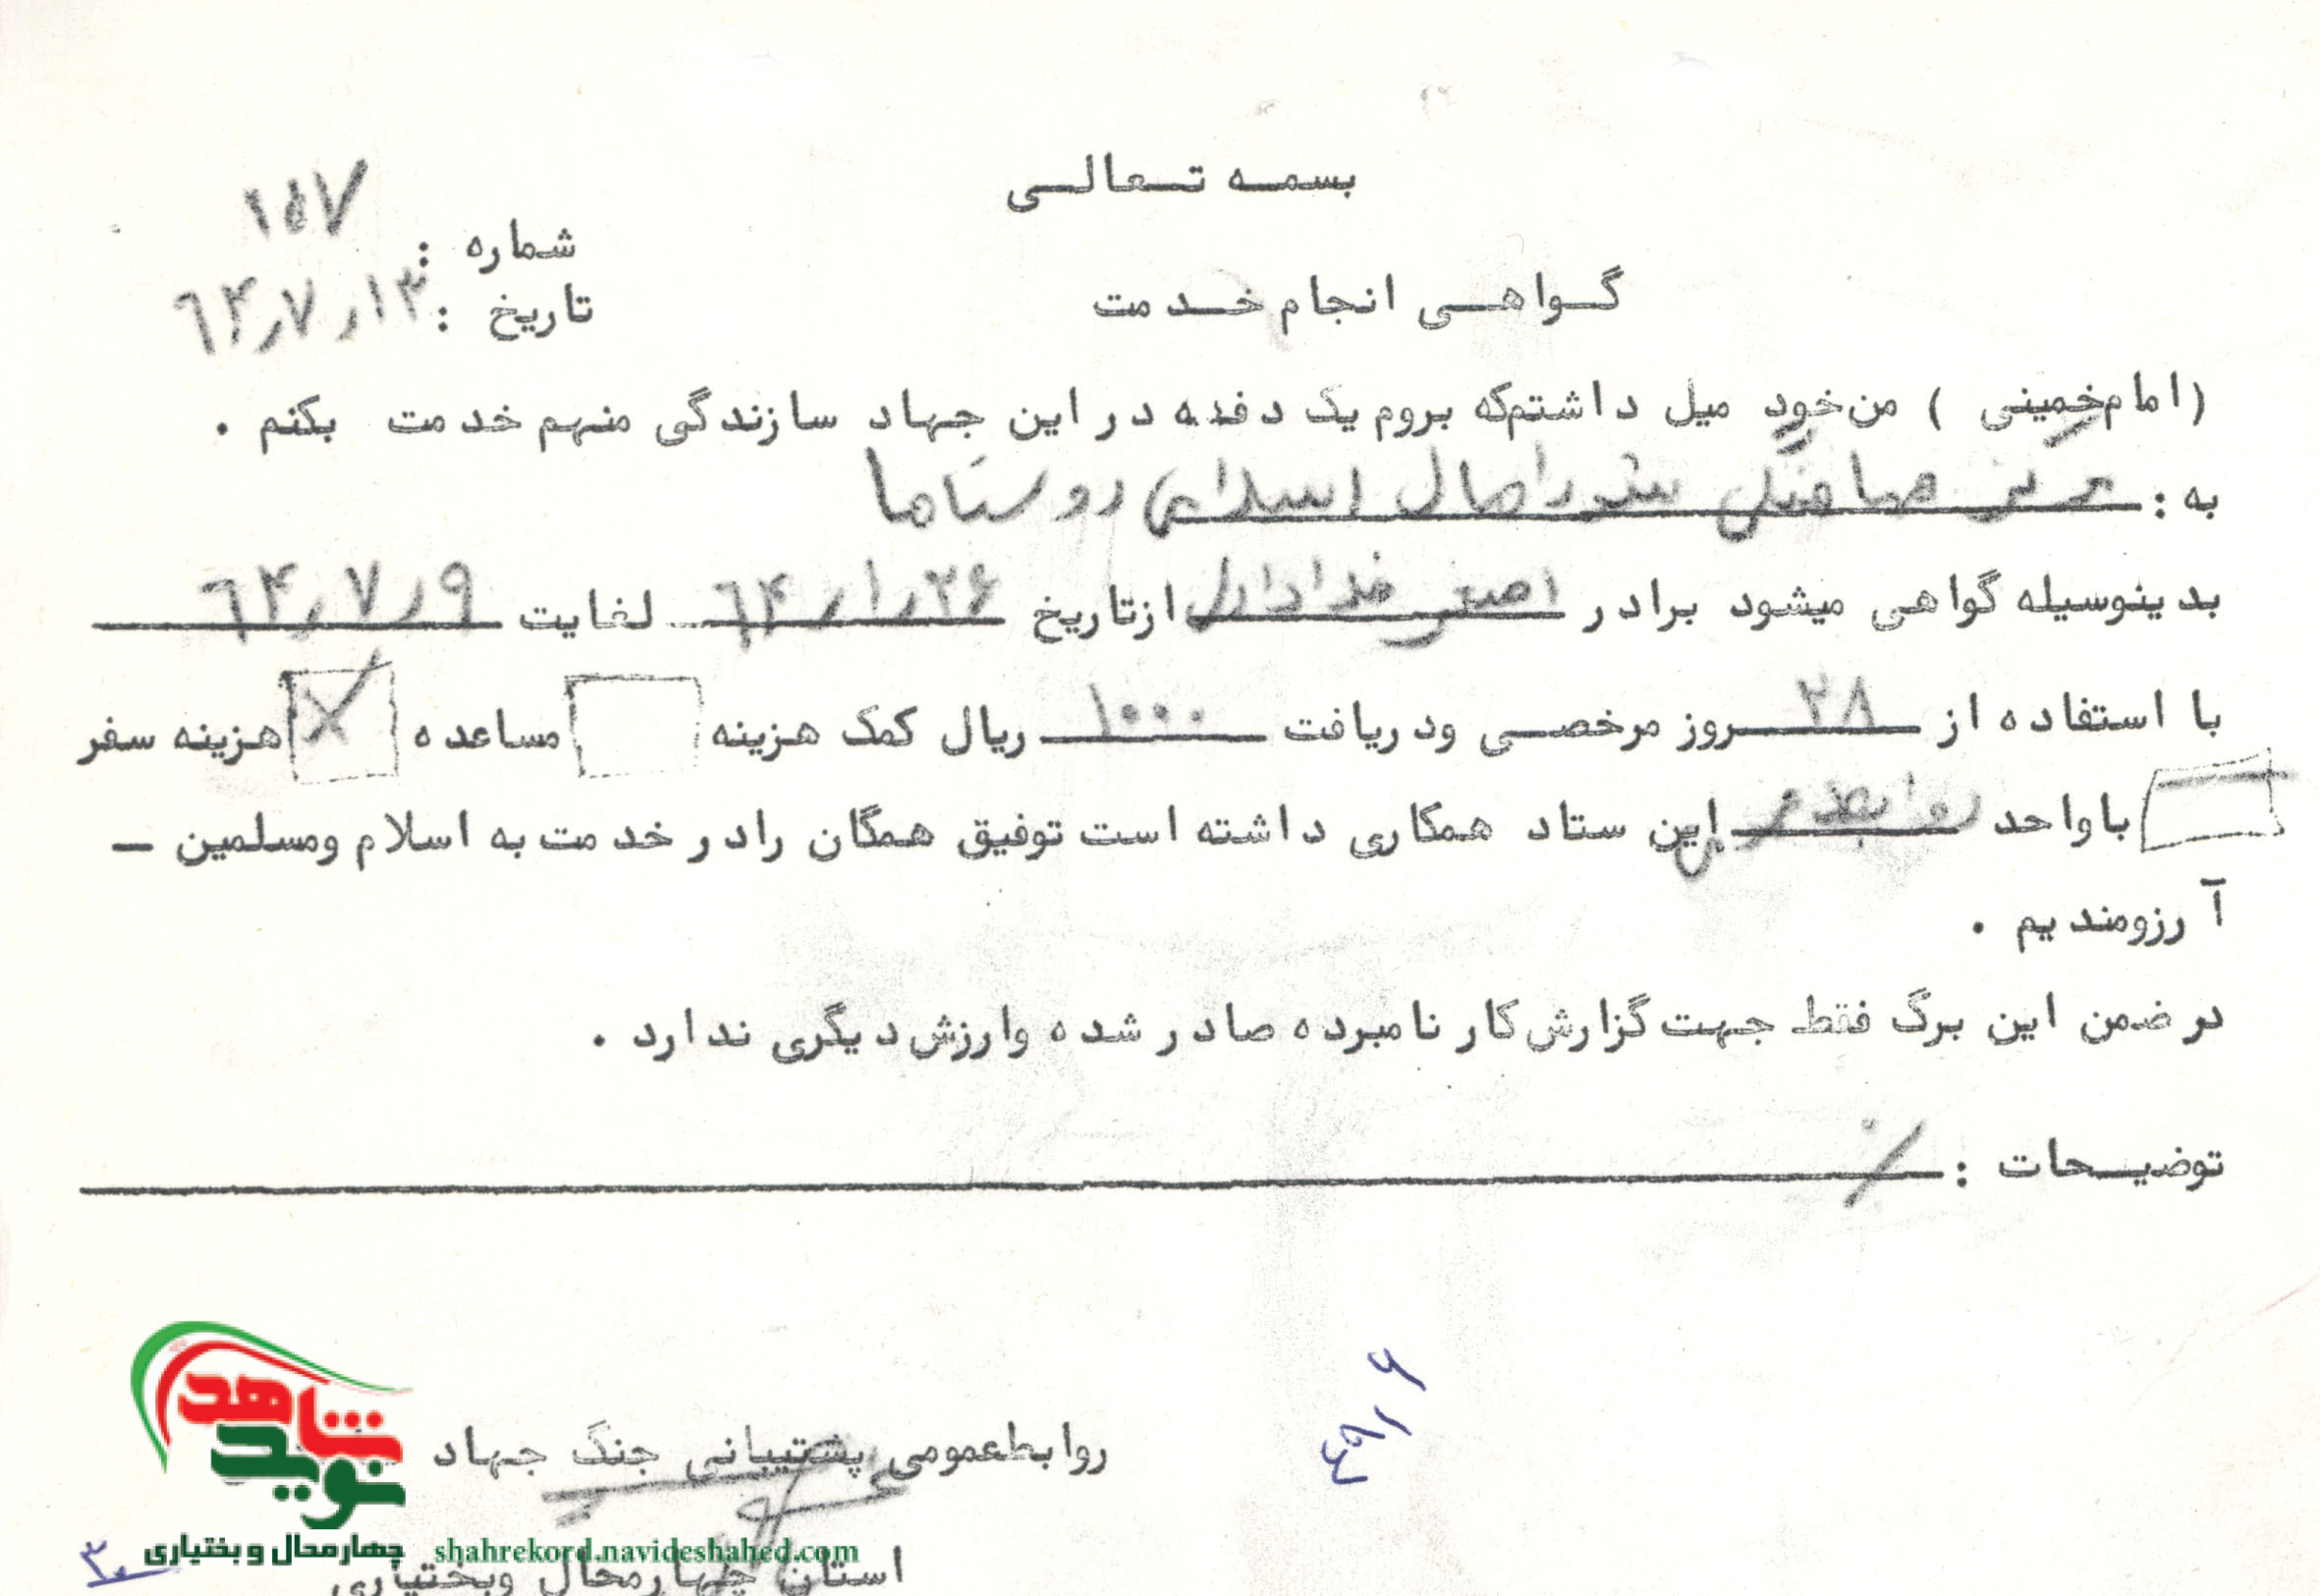 بسمه تعالی
شماره : ۱۵۷
گواهی انجام خدمت
تاریخ : ۶۴٫۷٫۱۳
(امام خمینی ) من خود میل داشتم که بروم یک دفعه در این جهاد سازندگی منهم خدمت بکنم .
به : اسلامی روستاها
بدینوسیله گواهی میشود برادر اصغر خدادادی از تاریخ ۶۴٫۱٫۲۶ لغایت ۶۴٫۷٫۹
با استفاده از ۲۸ روز مرخصی ودریافت ۱۰۰۰ ریال کمک هزینه مساعده هزینه سفر
باواحد روابط عمومی این ستاد همکاری داشته است توفیق همگان رادر خدمت به اسلام ومسلمین -
آرزومندیم .
در ضمن این برگ فقط جهت گزارش کار نامبرده صادر شده وارزش دیگری ندارد .
توضیحات :
روابط عمومی پشتیبانی جنگ جهاد
استان چهارمحال وبختیاری
نوید شاهد
چهارمحال و بختیاری
shahrekord.navideshahed.com
۳۰